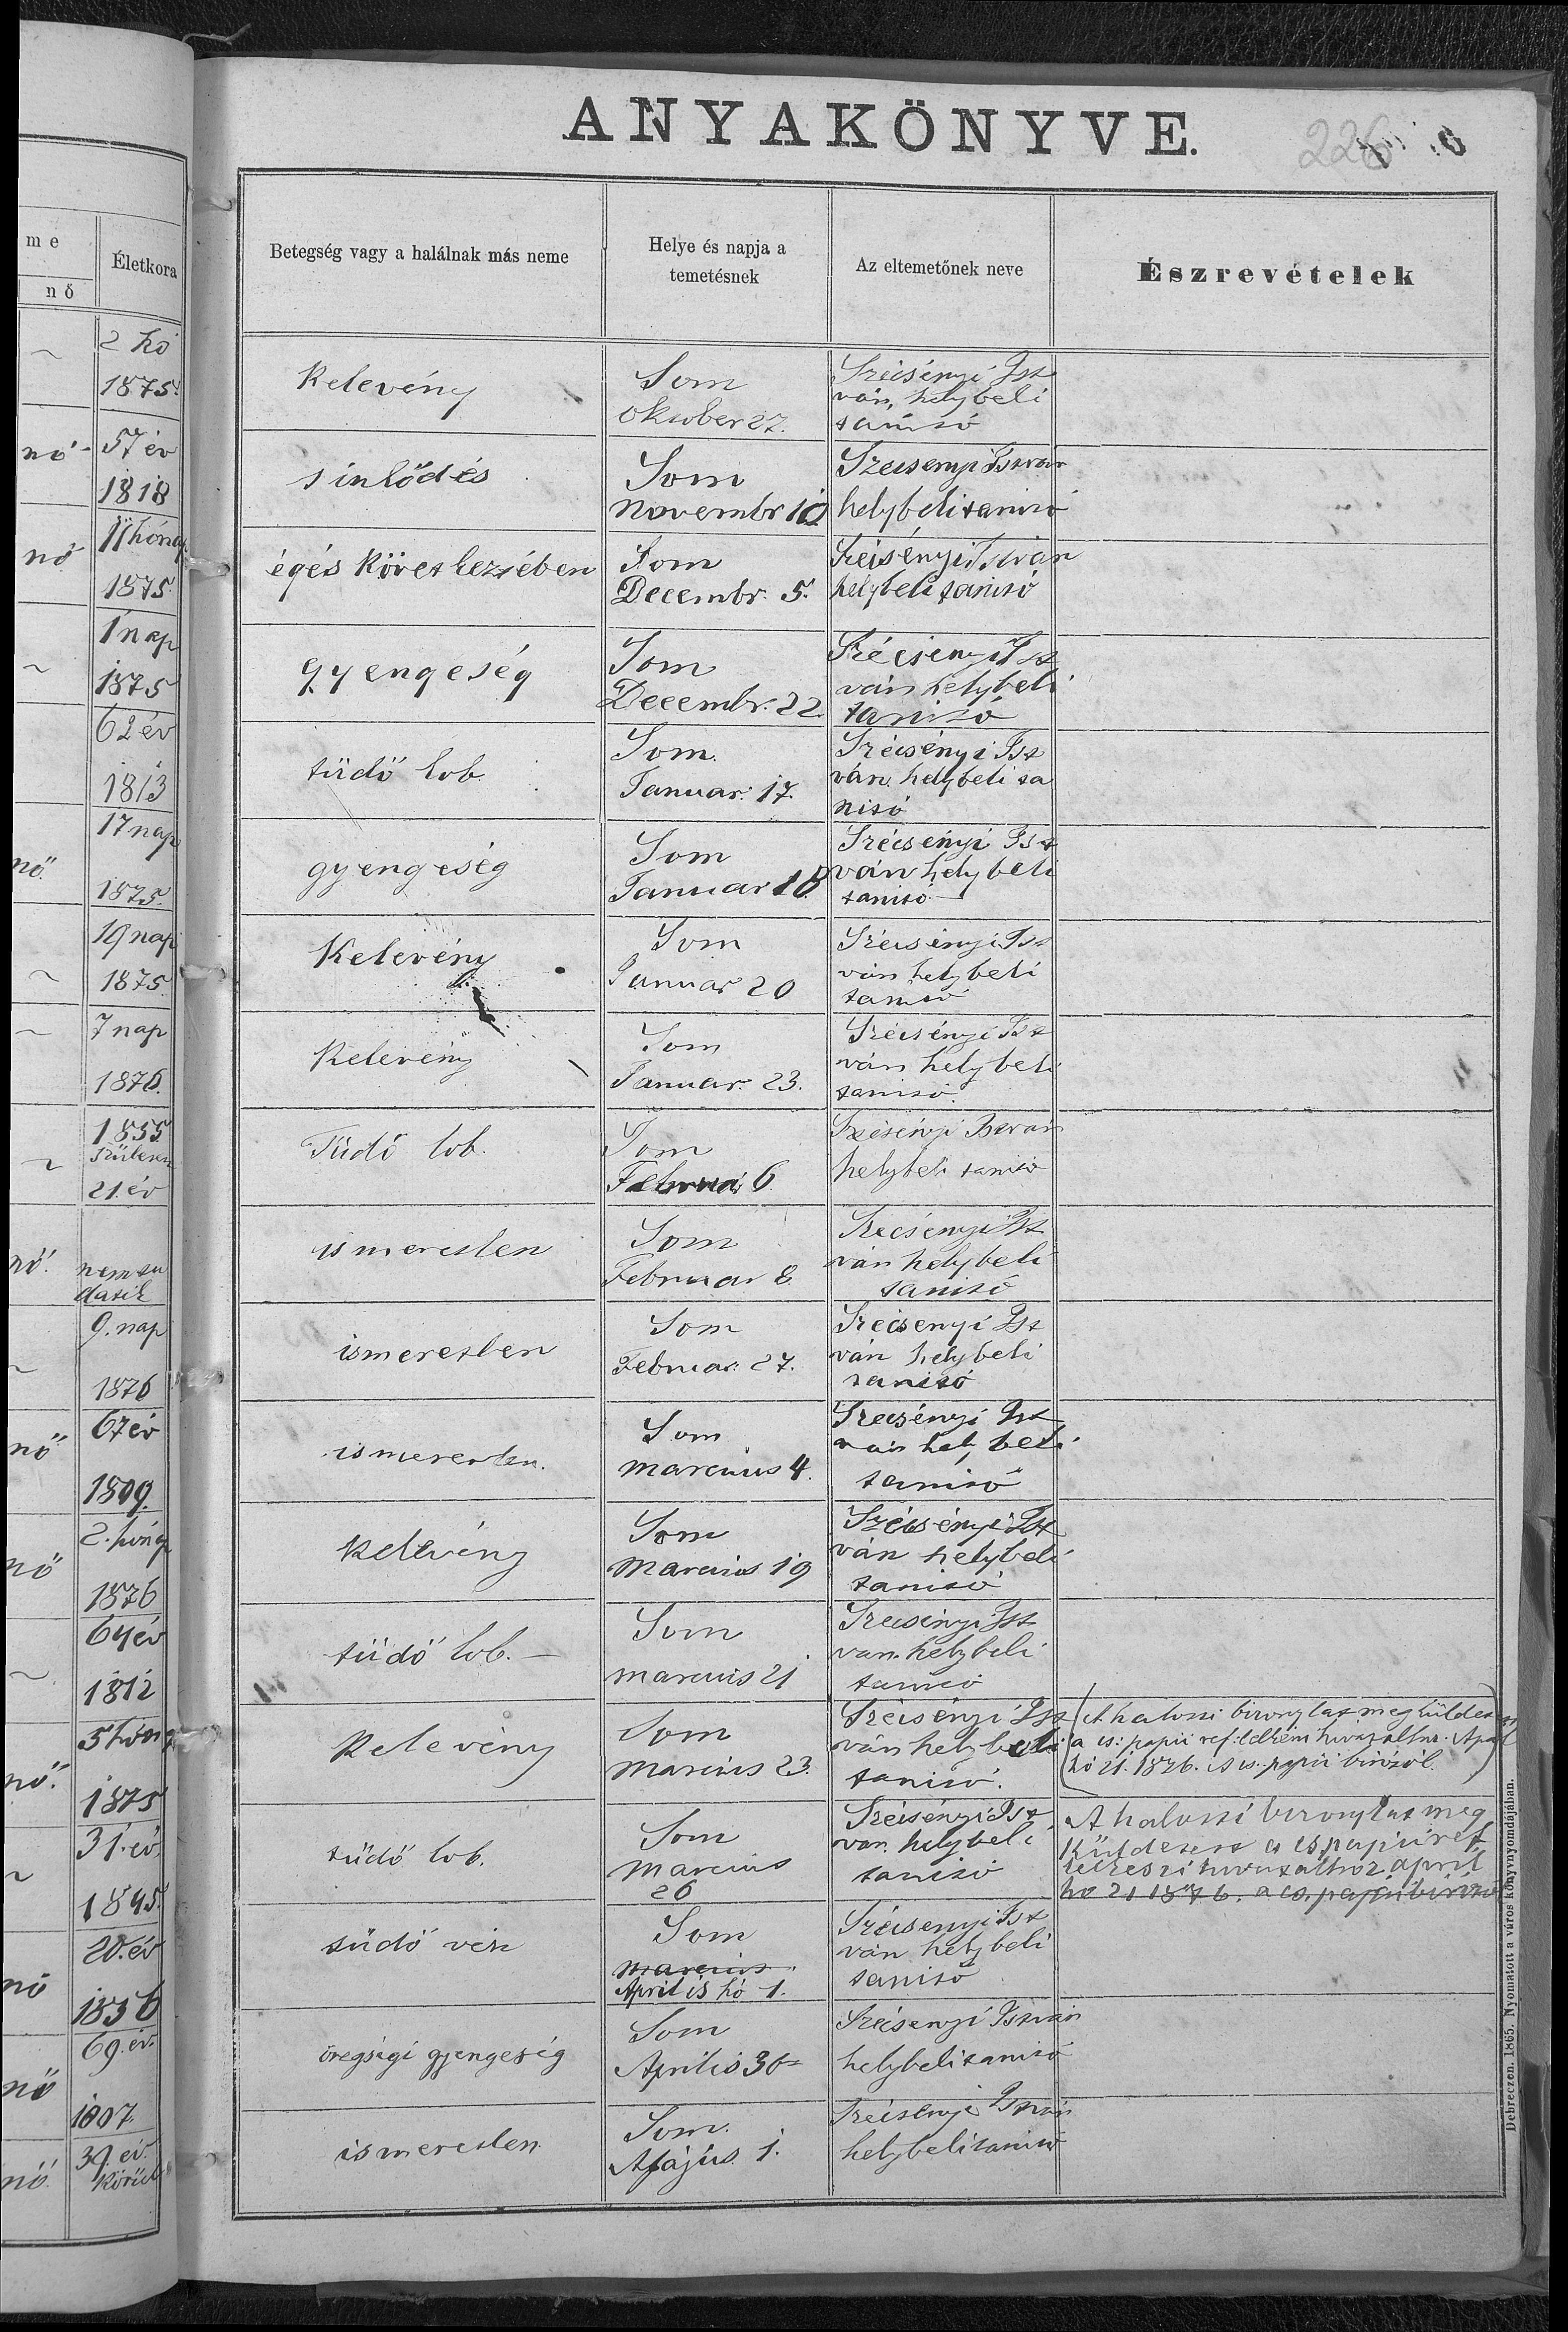 ANYAKÖNYVE.
226
me
nő
Életkora
Betegség vagy a halálnak más neme
Helye és napja a
temetésnek
Az eltemetőnek neve
Észrevételek
2 hó
1875.
Kelevény
Som
Oktober 27.
Szécsényi Ist
ván, helybeli
tanító
nő
57 év
1818
sinlődés
Som
Novembr 10
Szecsenyi István
helybeli tanitó
nő
11 hónap
1875.
égés következtében
Som
Decembr. 5.
Szécsényi István
helybeli tanitó
1 nap
1875
gyengeség
Som
Decembr. 22.
Szécsenyi Ist
ván helybeli
tanitó
62 év
1813
tüdő lob.
Som.
Januar. 17.
Szécsényi Ist
ván. helybeli ta
nitó
nő.
17 nap
1875.
gyengeség
Som
Januar 18.
Szécsényi Ist
ván helybeli
tanitó
19 nap
1875.
Kelevény
Som
Januar 20
Szécsényi Ist
ván helybeli
tanitó
7 nap
1876.
Kelevény
Som
Januar. 23.
Szécsényi Ist
ván helybeli
tanitó.
1855
Született
21. év
Tüdő lob.
Som
Februar 6.
Szécsényi István
helybeli tanitó
nő.
nem tu
datik
ismeretlen
Som
Februar 8.
Szecsényi Ist
ván helybeli
tanitó
9. nap
1876
ismeretlen
Som
Februar. 27.
Szécsenyi Ist
ván helybeli
tanitó
nő
67 év
1809.
ismeretlen.
Som
marcius 4.
Szecsényi Ist
ván helybeli
tanitó
nő
2. hónap
1876
Kelevény
Som
Marcius 19
Szécsényi Ist
ván helybeli
tanitó
64 év
1812
tüdő lob. —
Som
marcius 21
Szecsényi Ist
van. helybeli
tanitó
nő.
5 hónap
1875
Kelevény
Som
Marcius 23.
Szécsényi Ist
ván helybeli
tanitó.
(A halotti bizonyitat megküldetett
a cs: papii ref: lelkészi hivatalhoz. April
hó 21. 1876. A cs. papii biróról.)
31. év.
1845.
tüdő lob.
Som
Marcius
26
Szécsényi Ist
van. helybeli
tanitó
A halotti bizonyitat meg
küldetett a cs papii ref
lelkészi hivatalhoz april
hó 21 1876. a cs. papii biróról
nő
20. év
1856
tüdő vész
Som
marcius
Aprilis hó 1.
Szécsenyi Ist
ván helybeli
tanitó
nő
69. év.
1807.
öregségi gyengeség
Som
Aprilis 30
Szécsenyi István
helybeli tanitó
nő.
39. év.
körüli
ismeretlen.
Som.
Május 1.
Szécsényi István
helybeli tanitó
Debreczen. 1865. Nyomatott a város könyvnyomdájában.